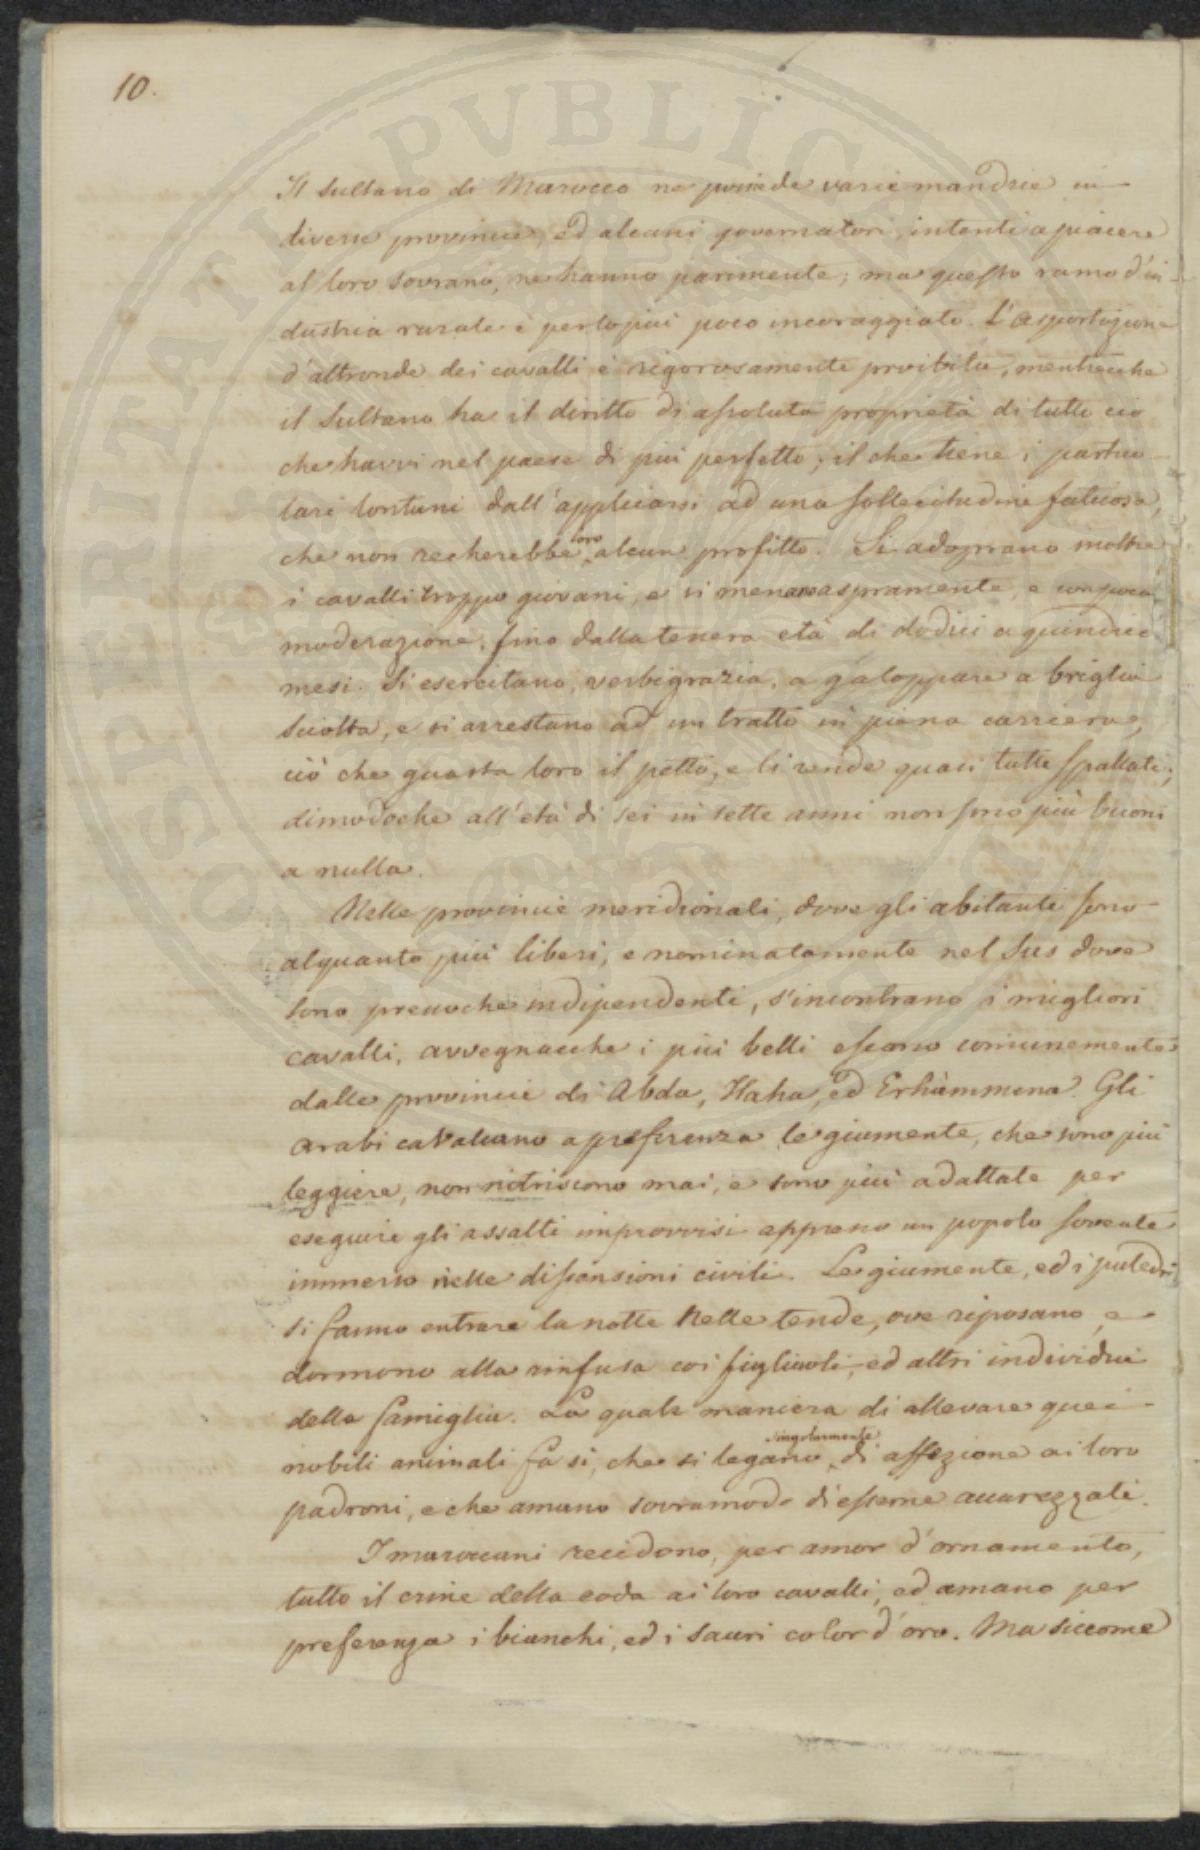 10.
Il Sultano di Marocco ne possiede varie mandrie in
diverse provincie, ed alcuni governatori, intenti a piacere
al loro sovrano, ne hanno parimente; ma questo ramo d'in-
dustria rurale è perlopiù poco incoraggiato. L'asportazione
d'altronde dei cavalli è rigorosamente proibita, mentrecchè
il Sultano ha il diritto di assoluta proprietà di tutto ciò
che havvi nel paese di più perfetto; il che tiene i partico-
lari lontani dall'applicarsi ad una sollecitudine faticosa,
che non recherebbe loro alcun profitto. Si adoprano inoltre
i cavalli troppo giovani, e si menano aspramente, e con poca
moderazione, fino dalla tenera età di dodici a quindici
mesi. Si esercitano, verbigrazia, a galoppare a briglia
sciolta, e si arrestano ad un tratto in piena carriera,
ciò che guasta loro il petto, e li rende quasi tutti spallati;
dimodochè all'età di sei in sette anni non sono più buoni
a nulla.
Nelle provincie meridionali, dove gli abitanti sono
alquanto più liberi, e nominatamente nel Sus dove
sono pressochè indipendenti, s'incontrano i migliori
cavalli, avvegnacchè i più belli escano comunemente
dalle provincie di Abda, Haha, ed Erhàmmena. Gli
arabi cavalcano a preferenza le giumente, che sono più
leggiere, non nitriscono mai, e sono più adattate per
eseguire gli assalti improvvisi appresso un popolo sovente
immerso nelle dissensioni civili. Le giumente, ed i puledri
si fanno entrare la notte nelle tende, ove riposano, e
dormono alla rinfusa coi figliuoli, ed altri individui
della famiglia. La quale maniera di allevare quei
nobili animali fa sì, che si legano singolarmente di affezione ai loro
padroni, e che amano sovramodo di esserne accarezzati.
I maroccani recidono, per amor d'ornamento,
tutto il crine della coda ai loro cavalli, ed amano per
preferenza i bianchi, ed i sauri color d'oro. Ma siccome
PROSPERITATI PVBLICAE